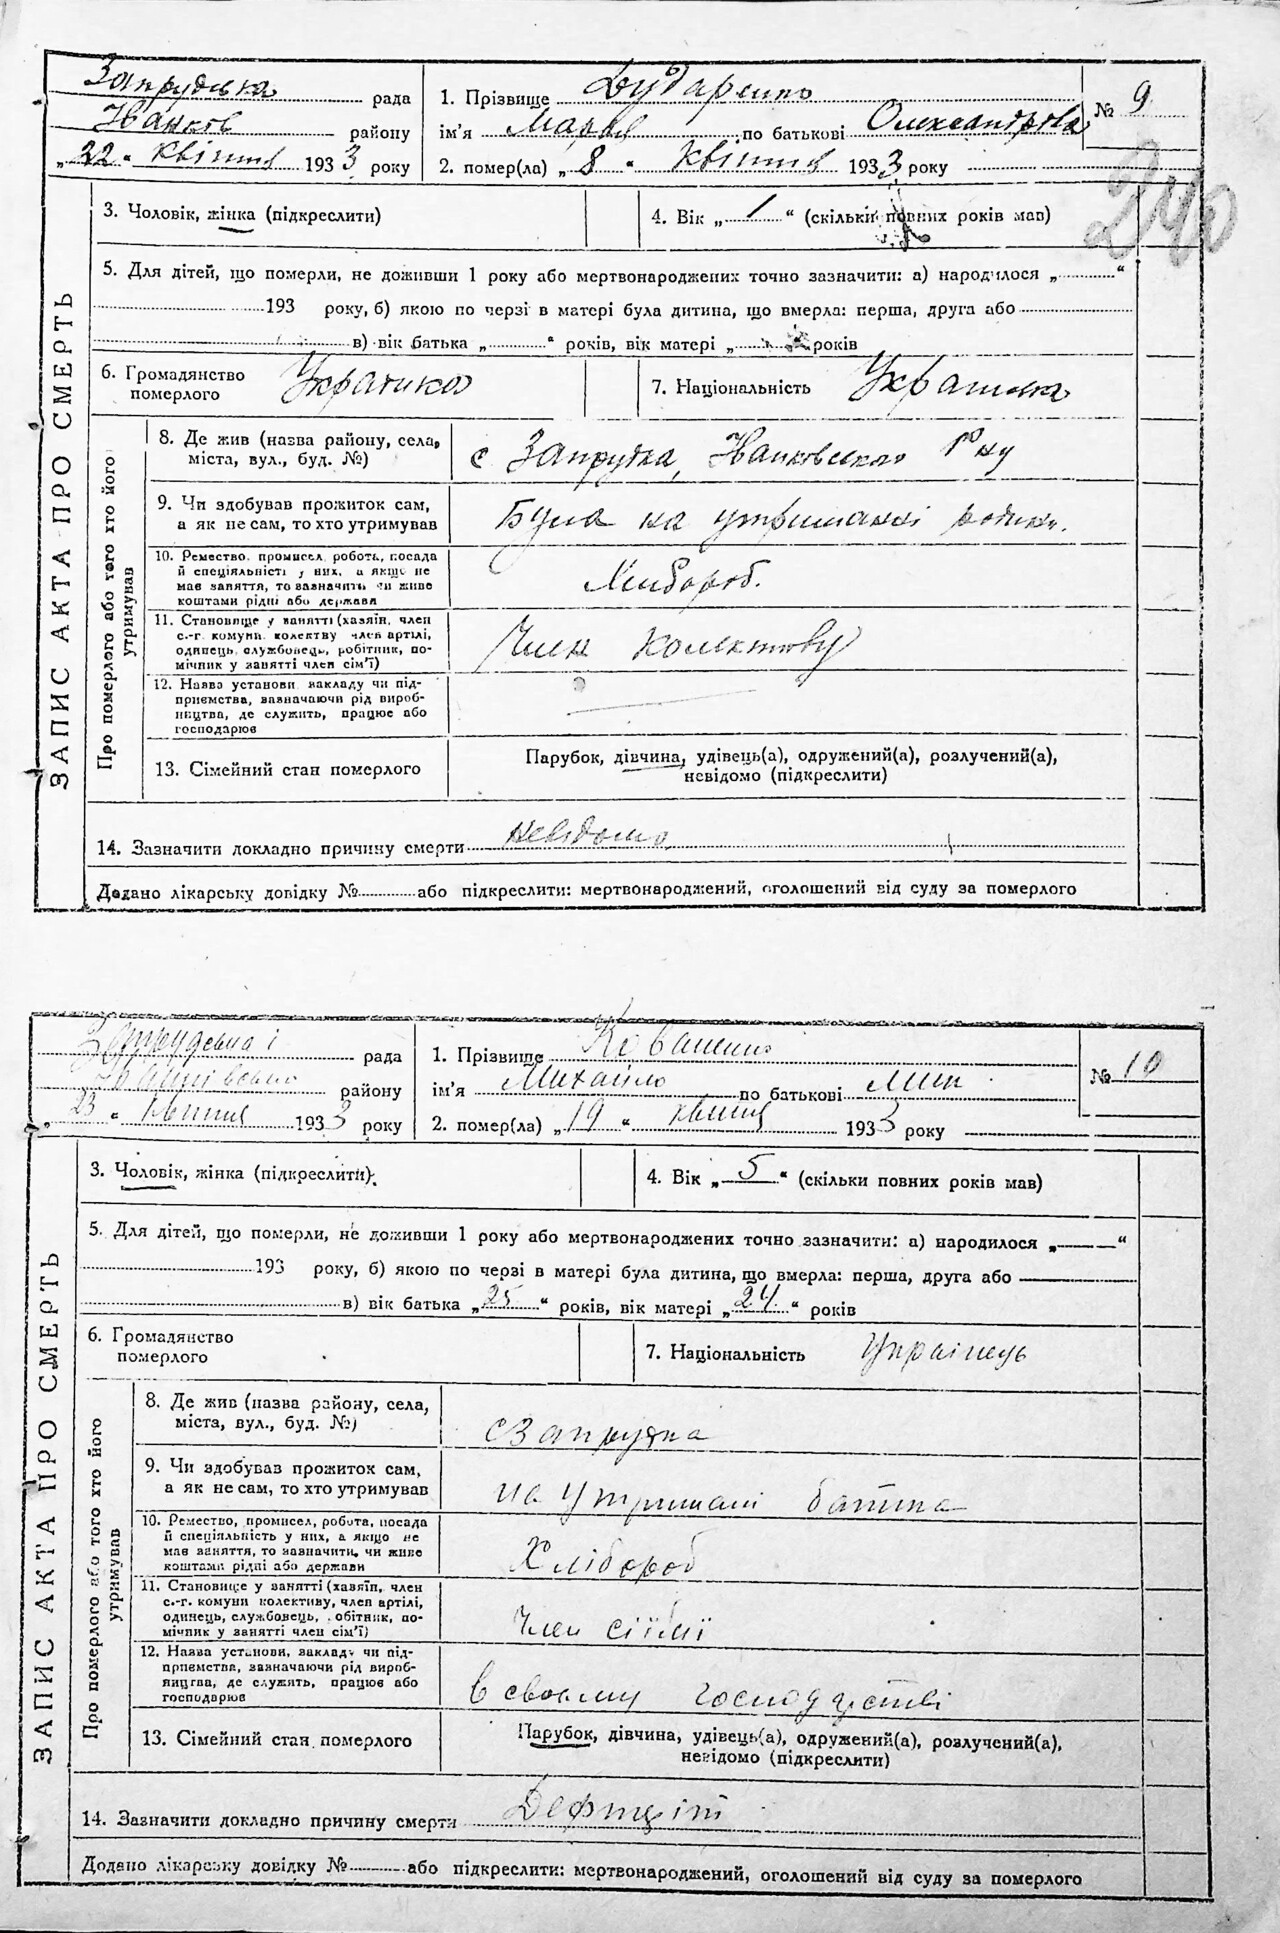 Запрудська рада
1. Прізвище Бударенко
№ 9
Іванков району
ім'я Марія по батькові Олександрова
„22“ квітня 1933 року
2. помер(ла) „8“ квітня 1933 року
240
3. Чоловік, жінка (підкреслити)
4. Вік „1“ (скільки повних років мав)
5. Для дітей, що померли, не доживши 1 року або мертвонароджених точно зазначити: а) народилося „ “
193 року, б) якою по черзі в матері була дитина, що вмерла: перша, друга або
в) вік батька „ “ років, вік матері „ “ років
6. Громадянство
померлого
Украінка
7. Національність Украинка
ЗАПИС АКТА ПРО СМЕРТЬ
Про померлого або того хто його
утримував
8. Де жив (назва району, села,
міста, вул., буд. №)
с Запрудка, Іванковського Р ну
9. Чи здобував прожиток сам,
а як не сам, то хто утримував
Була на утриманні родини.
10. Ремество, промисел, робота, посада
й спеціяльність у них, а якщо не
має заняття, то зазначить чи живе
коштами рідні або держави
Хлібороб.
11. Становище у занятті (хазяїн, член
с.-г. комуни колективу член артілі,
одинець, службовець, робітник, по-
мічник у занятті член сім'ї)
Член колективу
12. Назва установи закладу чи під-
приємства, зазначаючи рід вироб-
ництва, де служить, працює або
господарює
13. Сімейний стан померлого
Парубок, дівчина, удівець(а), одружений(а), розлучений(а),
невідомо (підкреслити)
14. Зазначити докладно причину смерти невідомо
Додано лікарську довідку № або підкреслити: мертвонароджений, оголошений від суду за померлого
рада
1. Прізвище
№ 10
району
ім'я Михайло по батькові Мик
„23“ квітня 1933 року
2. помер(ла) „19“ квітня 1933 року
3. Чоловік, жінка (підкреслити).
4. Вік „5“ (скільки повних років мав)
5. Для дітей, що померли, не доживши 1 року або мертвонароджених точно зазначити: а) народилося „ “
193 року, б) якою по черзі в матері була дитина, що вмерла: перша, друга або
в) вік батька „25“ років, вік матері „24“ років
6. Громадянство
померлого
7. Національність Українець
ЗАПИС АКТА ПРО СМЕРТЬ
Про померлого або того хто його
утримував
8. Де жив (назва району, села,
міста, вул., буд. №)
с Запрудка
9. Чи здобував прожиток сам,
а як не сам, то хто утримував
на утримані батька
10. Ремество, промисел, робота, посада
й спеціяльність у них, а якщо не
має заняття, то зазначити, чи живе
коштами рідні або держави
Хлібороб
11. Становище у занятті (хазяїн, член
с.-г. комуни колективу, член артілі,
одинець, службовець, робітник, по-
мічник у занятті член сім'ї)
Член сім'ї
12. Назва установи, закладу чи під-
приємства, зазначаючи рід вироб-
ництва, де служить, працює або
господарює
в своєму господарстві
13. Сімейний стан померлого
Парубок, дівчина, удівець(а), одружений(а), розлучений(а),
невідомо (підкреслити)
14. Зазначити докладно причину смерти
Додано лікарську довідку № або підкреслити: мертвонароджений, оголошений від суду за померлого